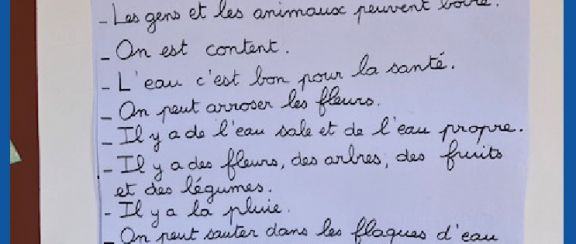 - Les gens et les animaux peuvent boire.
- On est content.
- L'eau c'est bon pour la santé.
- On peut arroser les fleurs.
- Il y a de l'eau sale et de l'eau propre.
- Il y a des fleurs, des arbres, des fruits
et des légumes.
- Il y a la pluie.
- On peut sauter dans les flaques d'eau